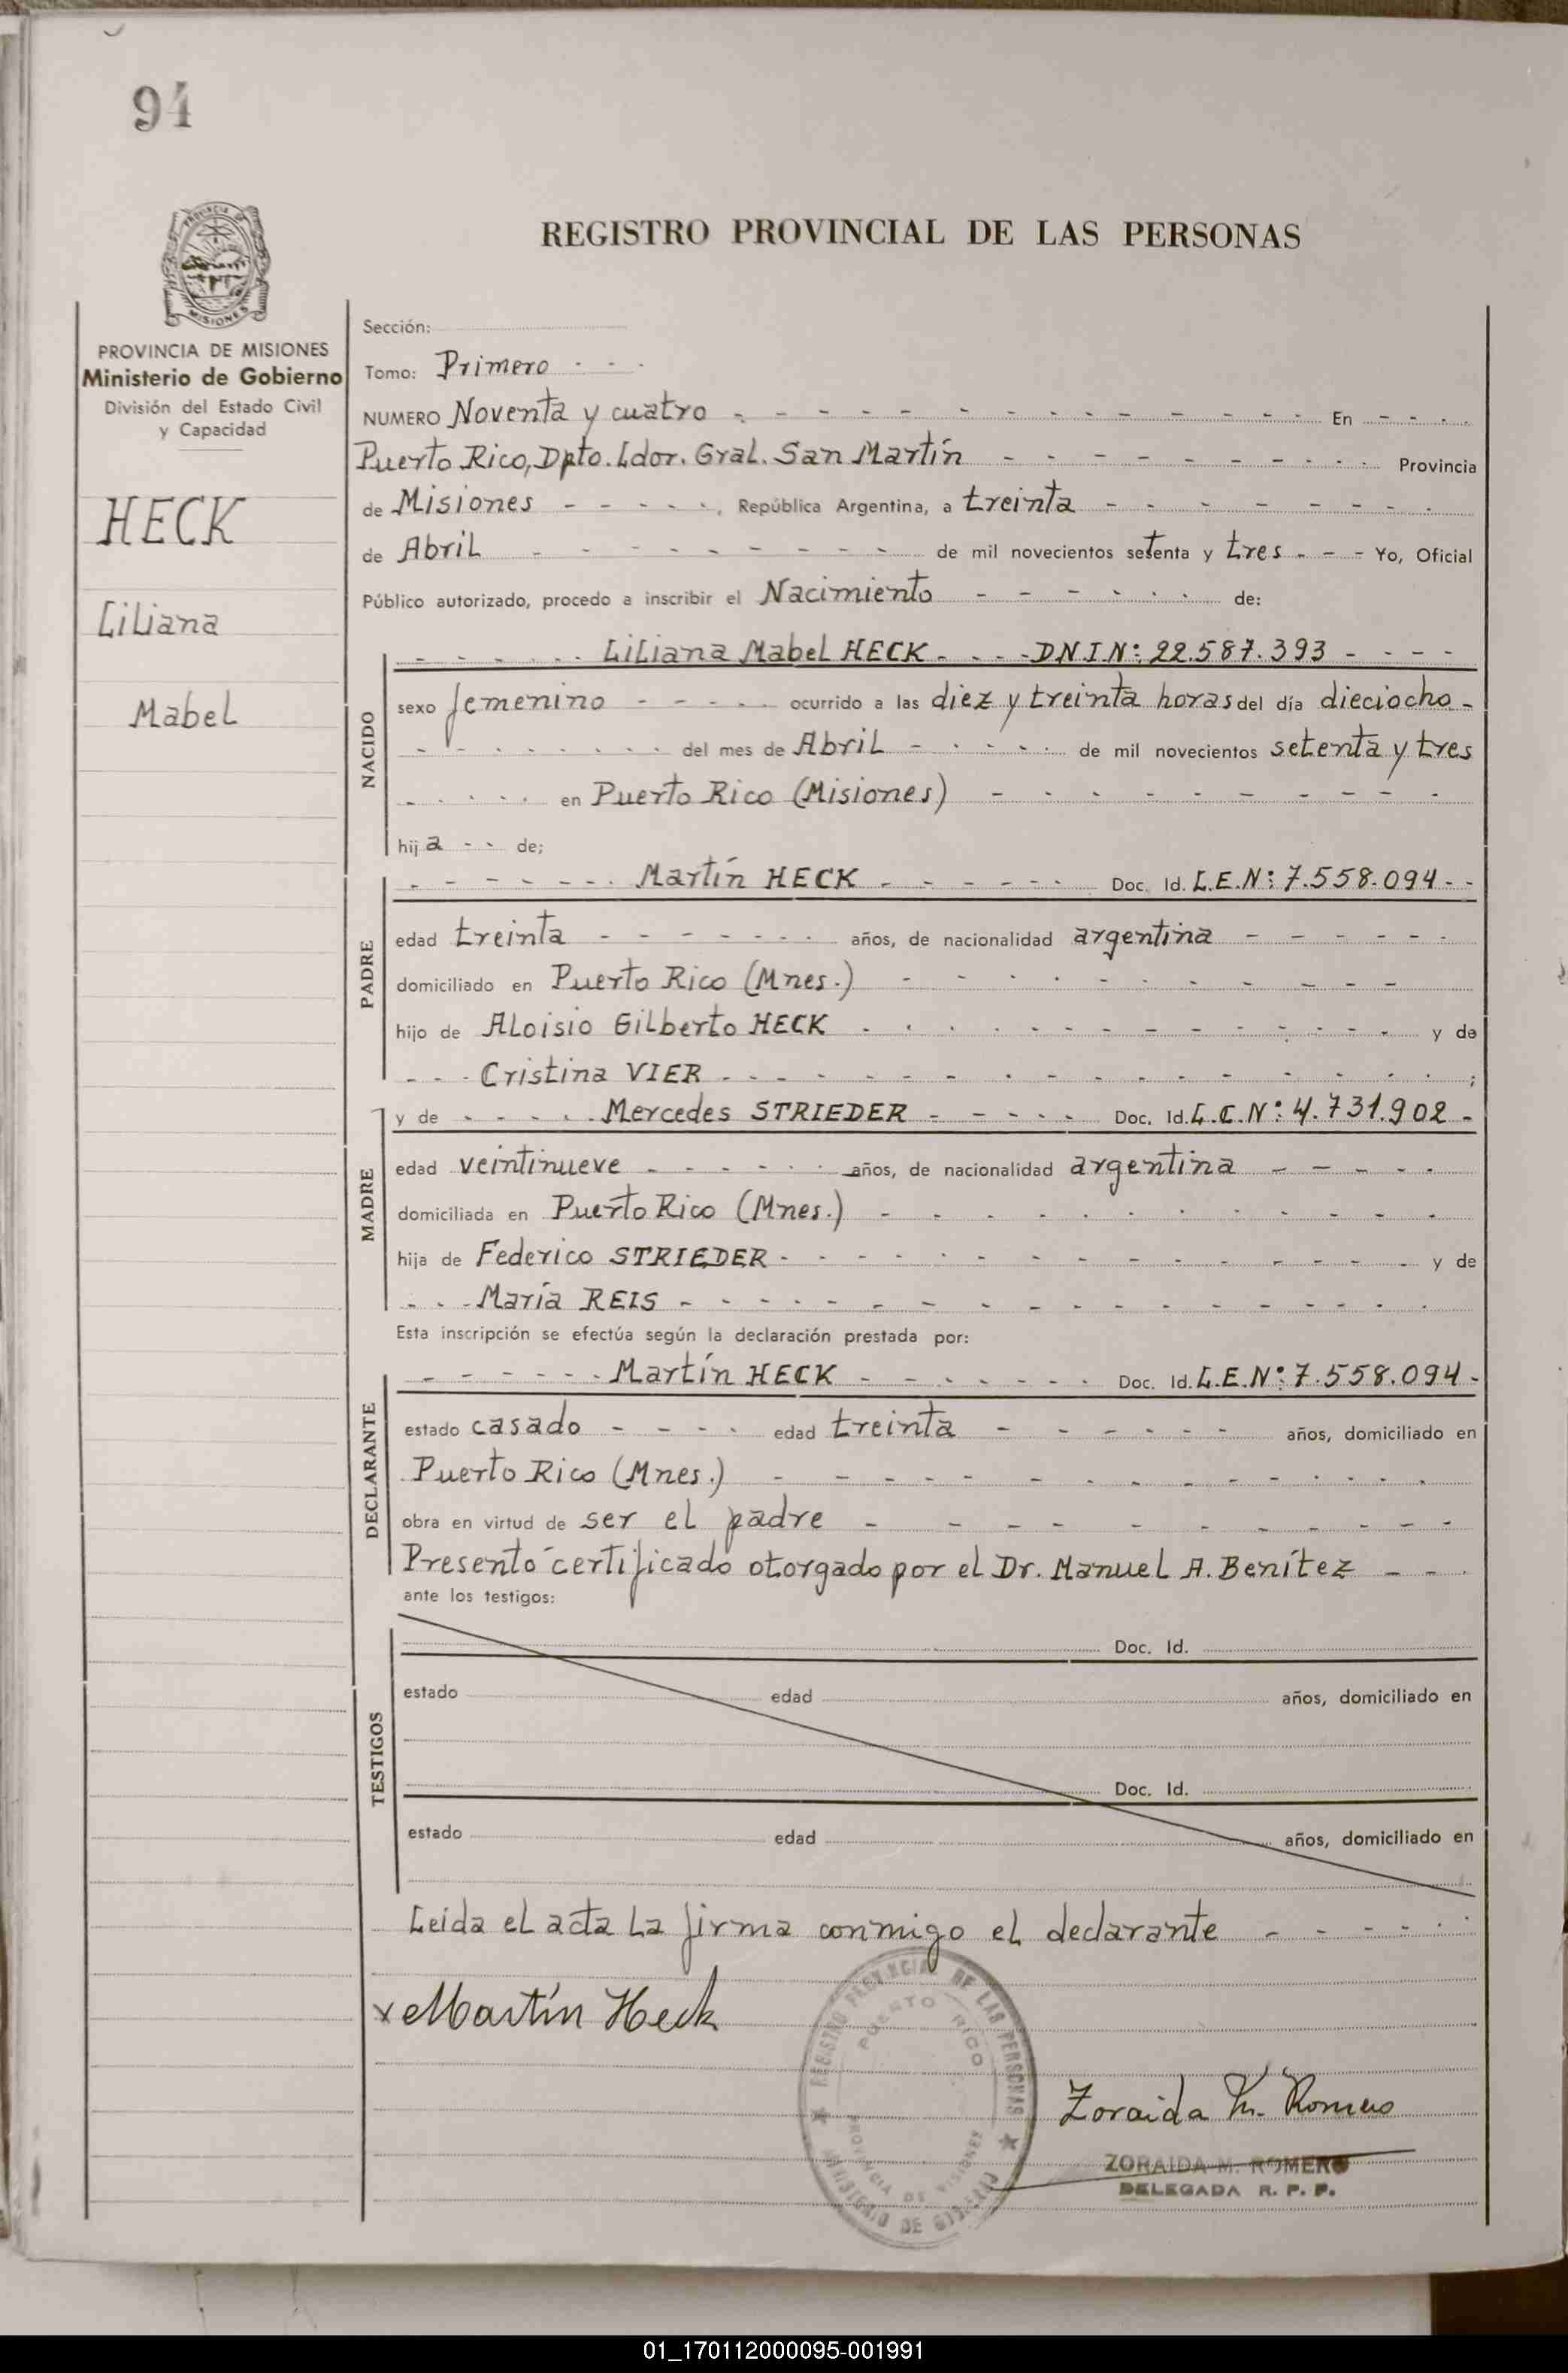 94
PROVINCIA DE
MISIONES
REGISTRO PROVINCIAL DE LAS PERSONAS
PROVINCIA DE MISIONES
Ministerio de Gobierno
División del Estado Civil
y Capacidad
HECK
Liliana
Mabel
Sección:
Tomo: Primero - - -
NUMERO Noventa y cuatro - - - - - - - - - - - - - - En - - - -
Puerto Rico, Dpto. Ldor. Gral. San Martín - - - - - - - - - Provincia
de Misiones - - - - -, República Argentina, a treinta - - - - - - - -
de Abril - - - - - - - - - de mil novecientos setenta y tres - - - Yo, Oficial
Público autorizado, procedo a inscribir el Nacimiento - - - - - - de:
NACIDO
- - - - - - Liliana Mabel HECK - - - - DNI Nº: 22.587.393 - - - -
sexo femenino - - - - - ocurrido a las diez y treinta horas del día dieciocho -
- - - - - - - - del mes de Abril - - - - - de mil novecientos setenta y tres
- - - - - en Puerto Rico (Misiones) - - - - - - - - - -
hija - - de;
PADRE
- - - - - - - Martín HECK - - - - - - Doc. Id. L.E.Nº: 7.558.094 - -
edad treinta - - - - - - - años, de nacionalidad argentina - - - - - -
domiciliado en Puerto Rico (Mnes.) - - - - - - - - - - -
hijo de Aloisio Gilberto HECK - - - - - - - - - - - - - y de
- - - Cristina VIER - - - - - - - - - - - - - - - - ;
MADRE
y de - - - - - Mercedes STRIEDER - - - - - Doc. Id. L.C.Nº: 4.731.902 -
edad veintinueve - - - - - - años, de nacionalidad argentina - - - - -
domiciliada en Puerto Rico (Mnes.) - - - - - - - - - - - -
hija de Federico STRIEDER - - - - - - - - - - - - - - y de
- - - María REIS - - - - - - - - - - - - - - - - -
Esta inscripción se efectúa según la declaración prestada por:
DECLARANTE
- - - - - - Martín HECK - - - - - - - Doc. Id. L.E.Nº: 7.558.094 -
estado casado - - - - edad treinta - - - - - - años, domiciliado en
Puerto Rico (Mnes.) - - - - - - - - - - - - - -
obra en virtud de ser el padre - - - - - - - - - - -
Presentó certificado otorgado por el Dr. Manuel A. Benítez - - -
ante los testigos:
TESTIGOS
Doc. Id.
estado edad años, domiciliado en
Doc. Id.
estado edad años, domiciliado en
Leída el acta la firma conmigo el declarante - - - - - -
x Martín Heck
REGISTRO PROVINCIAL DE LAS PERSONAS
PUERTO RICO
PROVINCIA DE MISIONES
MINISTERIO DE GOBIERNO
Zoraida M. Romero
ZORAIDA M. ROMERO
DELEGADA R. P. P.
01_170112000095-001991